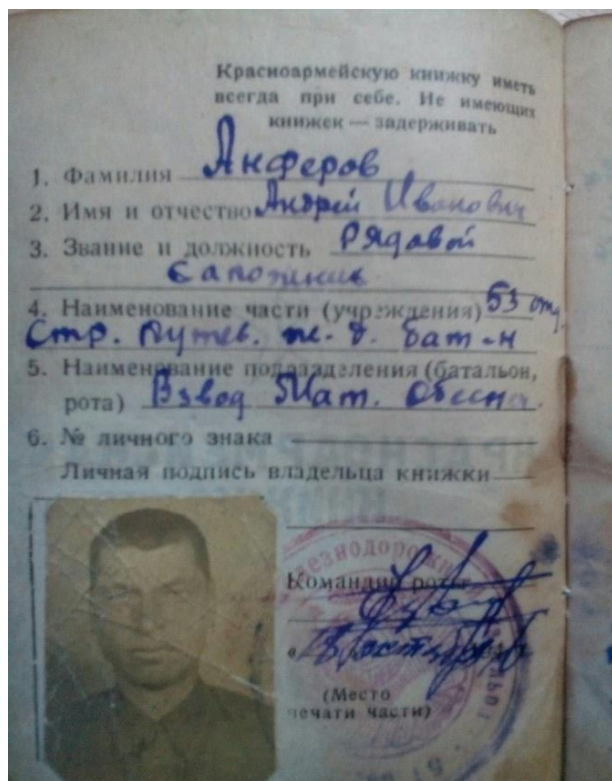 Красноармейскую книжку иметь
всегда при себе. Не имеющих
книжек — задерживать
1. Фамилия Анферов
2. Имя и отчество Андрей Иванович
3. Звание и должность Рядовой
Сапожник
4. Наименование части (учреждения) 53 отд.
Стр. Путев. ж. д. бат-н
5. Наименование подразделения (батальон,
рота) Взвод Мат. Обесп.
6. № личного знака
Личная подпись владельца книжки
Командир роты
(Место
печати части)